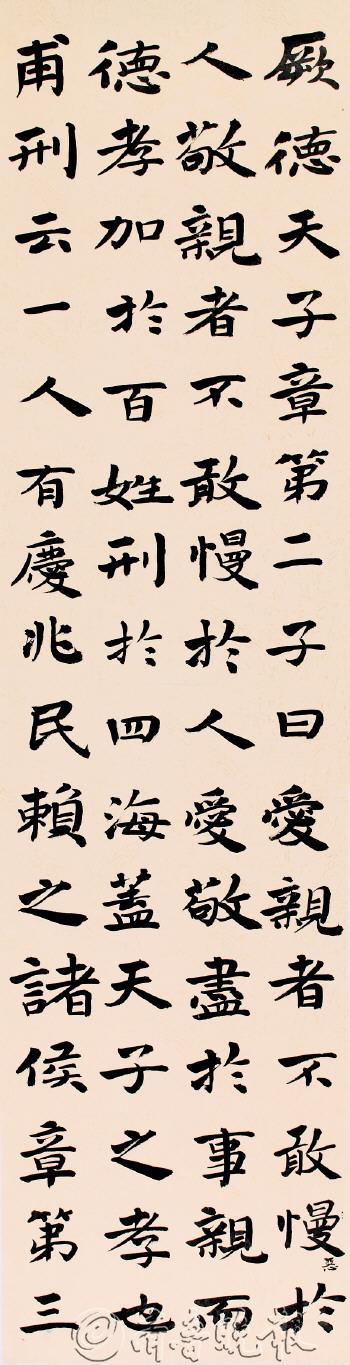 厥德天子章第二子曰愛親者不敢慢惡於
人敬親者不敢慢於人愛敬盡於事親而
德孝加於百姓刑於四海蓋天子之孝也
甫刑云一人有慶兆民賴之諸侯章第三
@齐鲁晚报